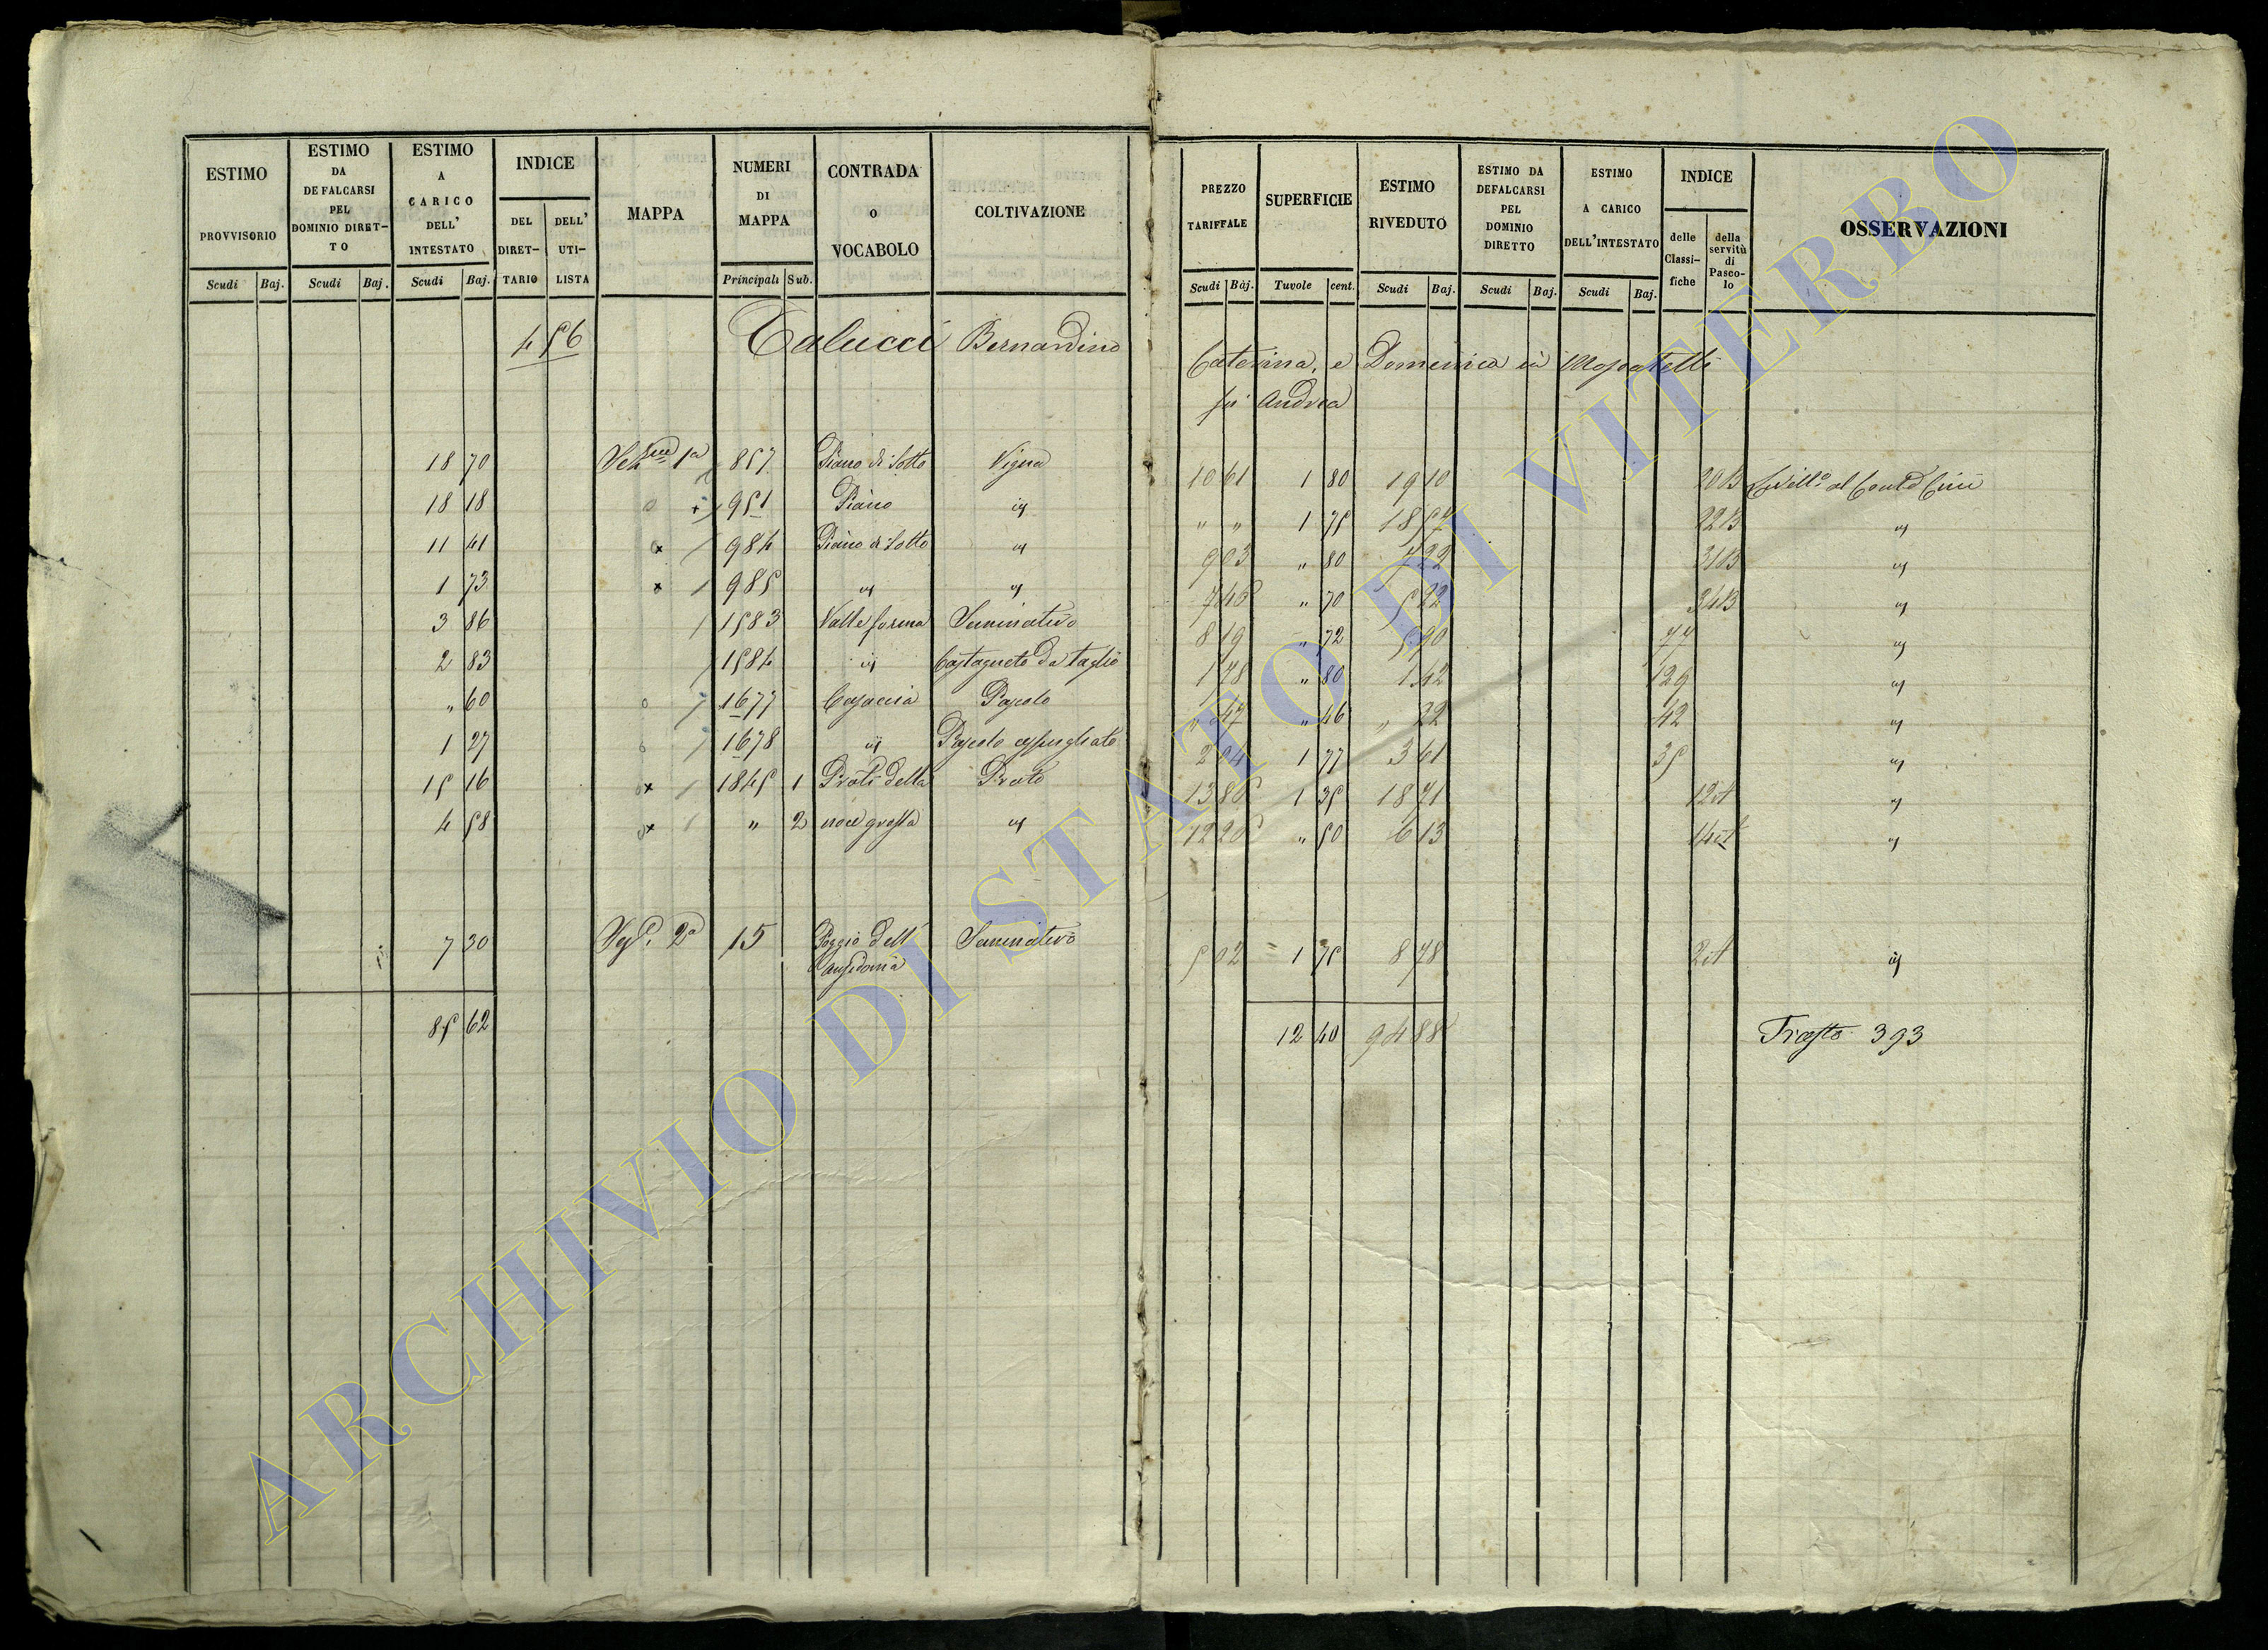 ESTIMO PROVVISORIO Scudi Baj.
ESTIMO DA DEFALCARSI PEL DOMINIO DIRETTO Scudi Baj.
ESTIMO A CARICO DELL' INTESTATO Scudi Baj.
INDICE DEL DIRETTARIO DELL' UTILISTA
MAPPA
NUMERI DI MAPPA Principali Sub.
CONTRADA O VOCABOLO
COLTIVAZIONE
PREZZO TARIFFALE Scudi Baj.
SUPERFICIE Tavole cent.
ESTIMO RIVEDUTO Scudi Baj.
ESTIMO DA DEFALCARSI PEL DOMINIO DIRETTO Scudi Baj.
ESTIMO A CARICO DELL'INTESTATO Scudi Baj.
INDICE delle Classifiche della servitù di Pascolo
OSSERVAZIONI
456 Talucci Bernardino Caterina, e Domenica in
fu Andrea
18 70 1a 857 Piano di Sotto Vigna 10 61 1 80 19 10 20B
18 18 951 Piano " " " 1 75 18 57 22B "
11 41 984 Piano di Sotto " 9 03 " 80 7 22 31B "
1 73 985 " " 746 " 70 5 22 34B "
3 86 1583 Seminativo 8 19 " 72 5 90 77 "
2 83 1584 " Castagneto da taglio 1 78 " 80 1 42 129 "
" 60 1677 Casaccia Pascolo " 47 " 46 " 22 42 "
1 27 1678 " Pascolo cespugliato 2 04 1 77 3 61 35 "
15 16 1845 1 Prati della Prato 13 86 1 35 18 71 12A "
4 58 " 2 noce grossa " 12 26 " 50 6 13 14A "
7 30 2a 15 Poggio dell' Seminativo 5 02 1 75 8 78 2A "
Ansidonia
85 62 12 40 94 88 393
ARCHIVIO DI STATO DI VITERBO